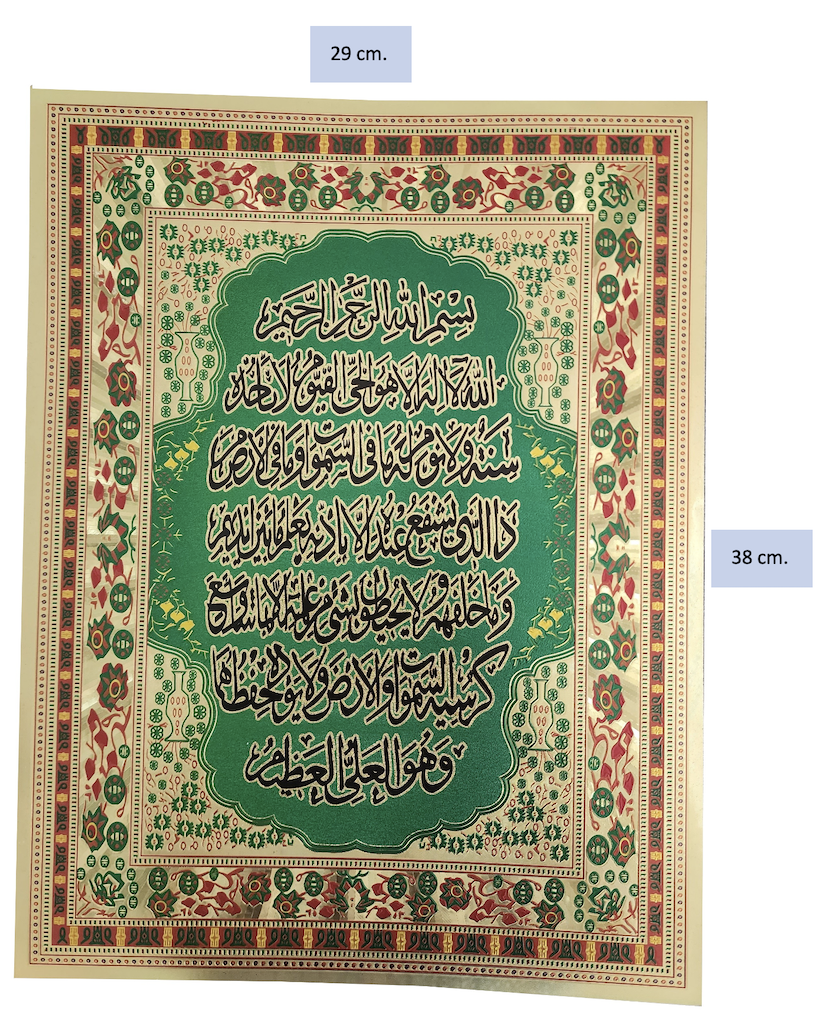 29 cm.
بسم الله الرحمن الرحيم
الله لا اله الا هو الحي القيوم لا تأخذه
سنة ولا نوم له ما في السموات وما في الارض من
ذا الذي يشفع عنده الا باذنه يعلم ما بين ايديهم
وما خلفهم ولا يحيطون بشئ من علمه الا بما شاء وسع
38 cm.
كرسيه السموات والارض ولا يؤده حفظهما
وهو العلي العظيم